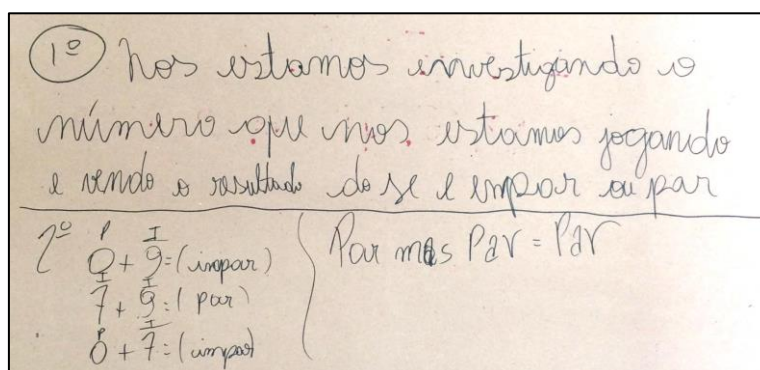 1º Nos estamos investigando o
número que nos estamos jogando
e vendo o resultado do se e empar ou par
2º P I
0 + 9 = (impar)
I I
7 + 9 = ( par )
P I
0 + 7 = (impar)
Par mas Par = Par